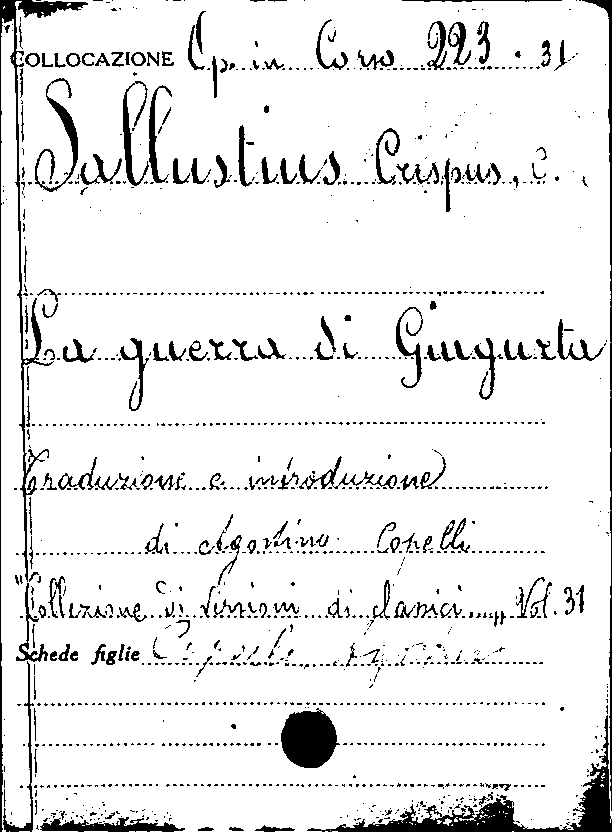 COLLOCAZIONE Op. in Corso 223 . 31
Sallustius Crispus, C.
La guerra di Giugurta
Traduzione e introduzione
di Agostino Copelli
"Collezione di versioni di classici..." Vol. 31
Schede figlie Copelli, Agostino